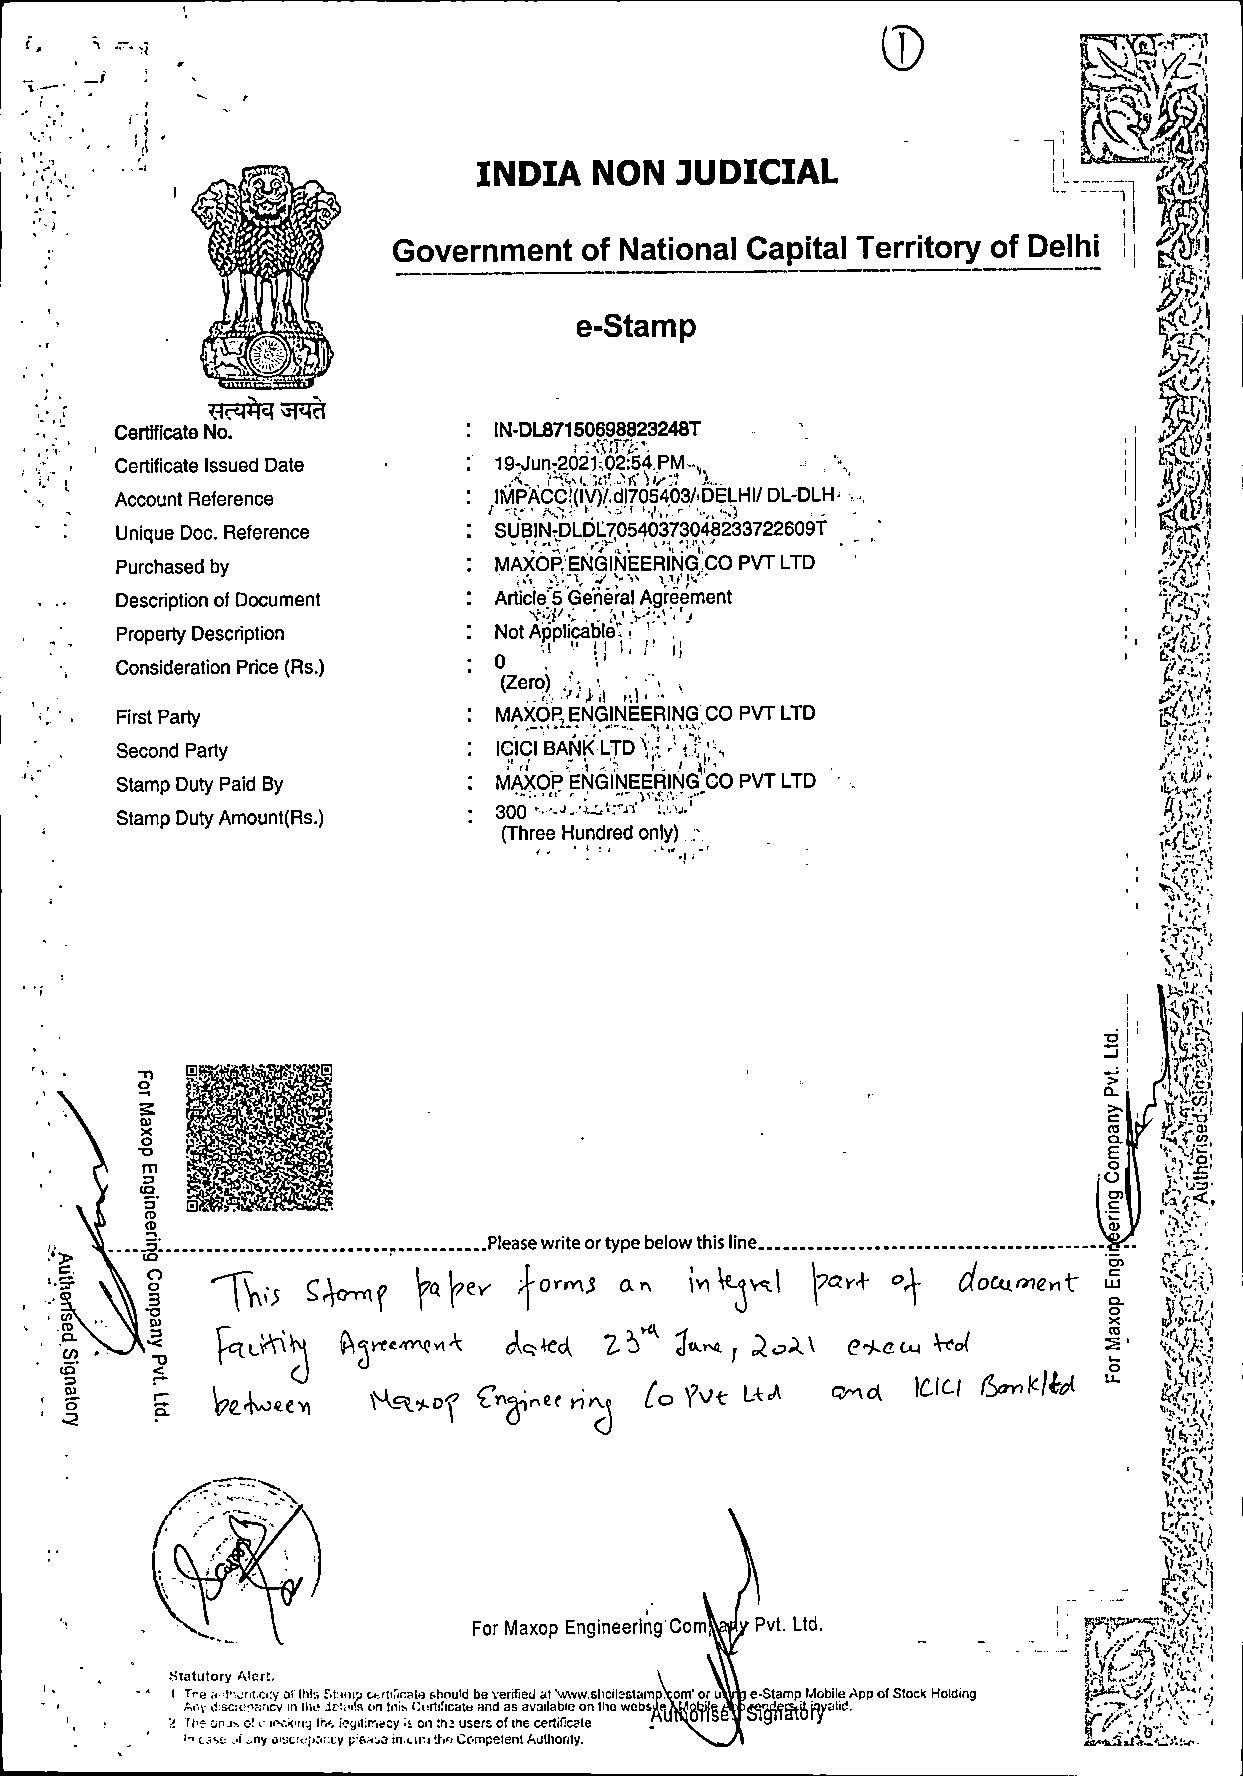 1
INDIA NON JUDICIAL
Government of National Capital Territory of Delhi
e-Stamp
सत्यमेव जयते
Certificate No. : IN-DL87150698823248T
Certificate Issued Date : 19-Jun-2021 02:54 PM
Account Reference : IMPACC (IV)/ dl705403/ DELHI/ DL-DLH
Unique Doc. Reference : SUBIN-DLDL70540373048233722609T
Purchased by : MAXOP ENGINEERING CO PVT LTD
Description of Document : Article 5 General Agreement
Property Description : Not Applicable
Consideration Price (Rs.) : 0
(Zero)
First Party : MAXOP ENGINEERING CO PVT LTD
Second Party : ICICI BANK LTD
Stamp Duty Paid By : MAXOP ENGINEERING CO PVT LTD
Stamp Duty Amount(Rs.) : 300
(Three Hundred only)
For Maxop Engineering Company Pvt. Ltd.
Authorised Signatory
For Maxop Engineering Company Pvt. Ltd.
Authorised Signatory
Please write or type below this line
This Stamp paper forms an integral part of document
Facility Agreement dated 23rd June, 2021 executed
between Maxop Engineering Co Pvt Ltd and ICICI Bank ltd
For Maxop Engineering Company Pvt. Ltd.
Authorised Signatory
Statutory Alert:
1. The authenticity of this Stamp certificate should be verified at 'www.shcilestamp.com' or using e-Stamp Mobile App of Stock Holding
Any discrepancy in the details on this Certificate and as available on the website / Mobile App renders it invalid.
2. The onus of checking the legitimacy is on the users of the certificate
In case of any discrepancy please inform the Competent Authority.